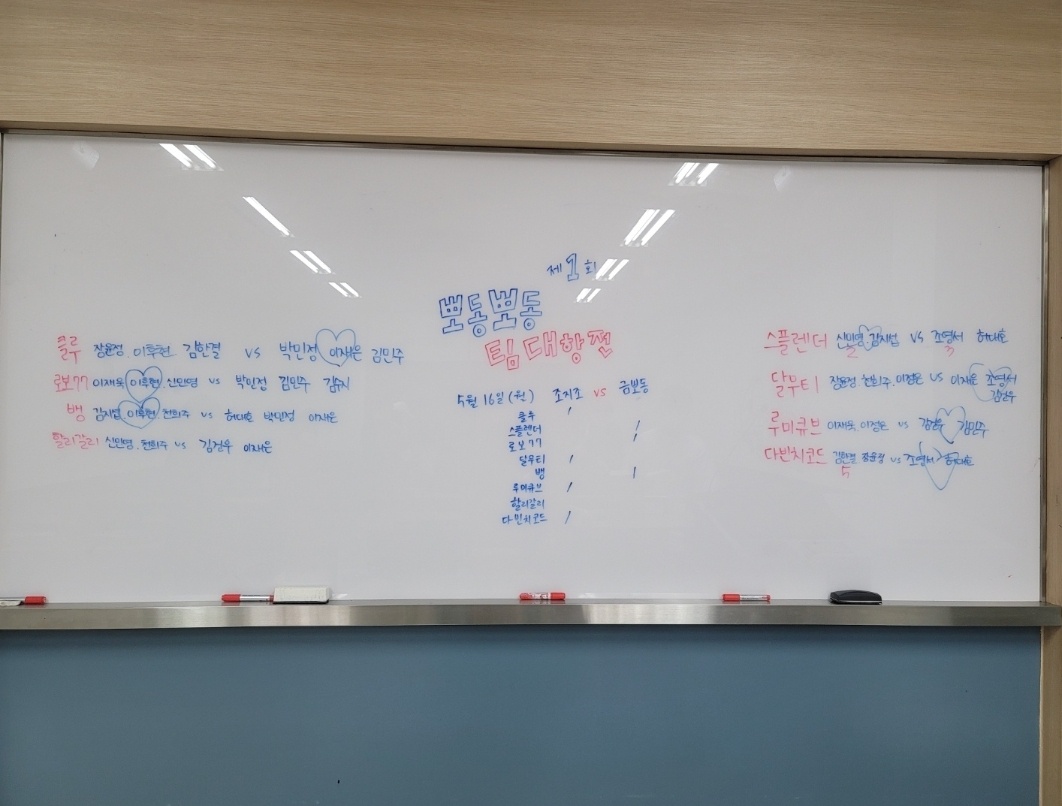 제 1 회
뽀동뽀동
팀 대항전
클루 장윤정 이투현 김한결 vs 박민정 이재은 김민주
로보77 이재욱 이투현 신민영 vs 박민정 김민주
뱅 이투현 천희주 vs 허대호 박민정 이재은
할리갈리 신민영 천희주 vs 김건우 이재은
5월 16일 (월) 조지조 vs 금보동
클루 /
스플렌더 /
로보77 /
달무티 /
뱅 /
루미큐브 /
할리갈리
다빈치코드 /
스플렌더 신민영 김지섭 vs 조영서 허대호
2 3
달무티 장윤정 천희주 이정은 vs 이재은 조영서
김건우
루미큐브 이재욱 이정은 vs 김민주
다빈치코드 김한결 장윤정 vs 조영서 허대호
5